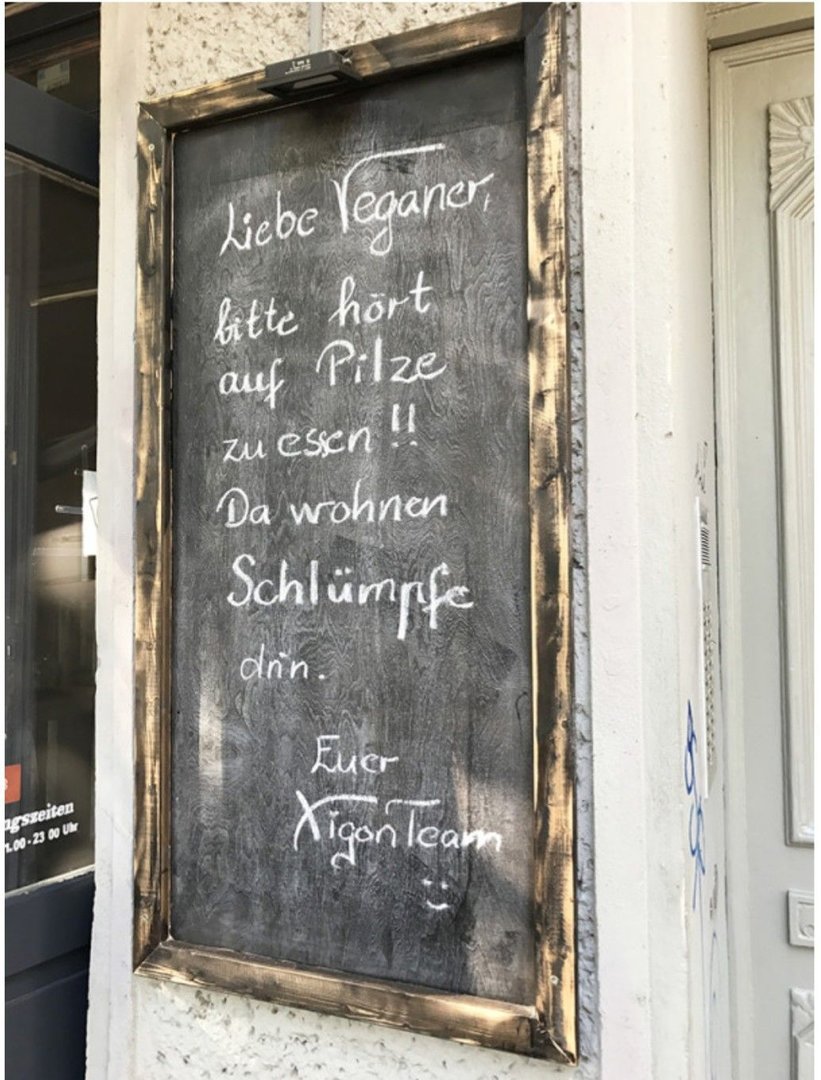 Liebe Veganer,
bitte hört
auf Pilze
zu essen!!
Da wohnen
Schlümpfe
drin.
Euer
Xigon Team
ngszeiten
.00 - 23 00 Uhr